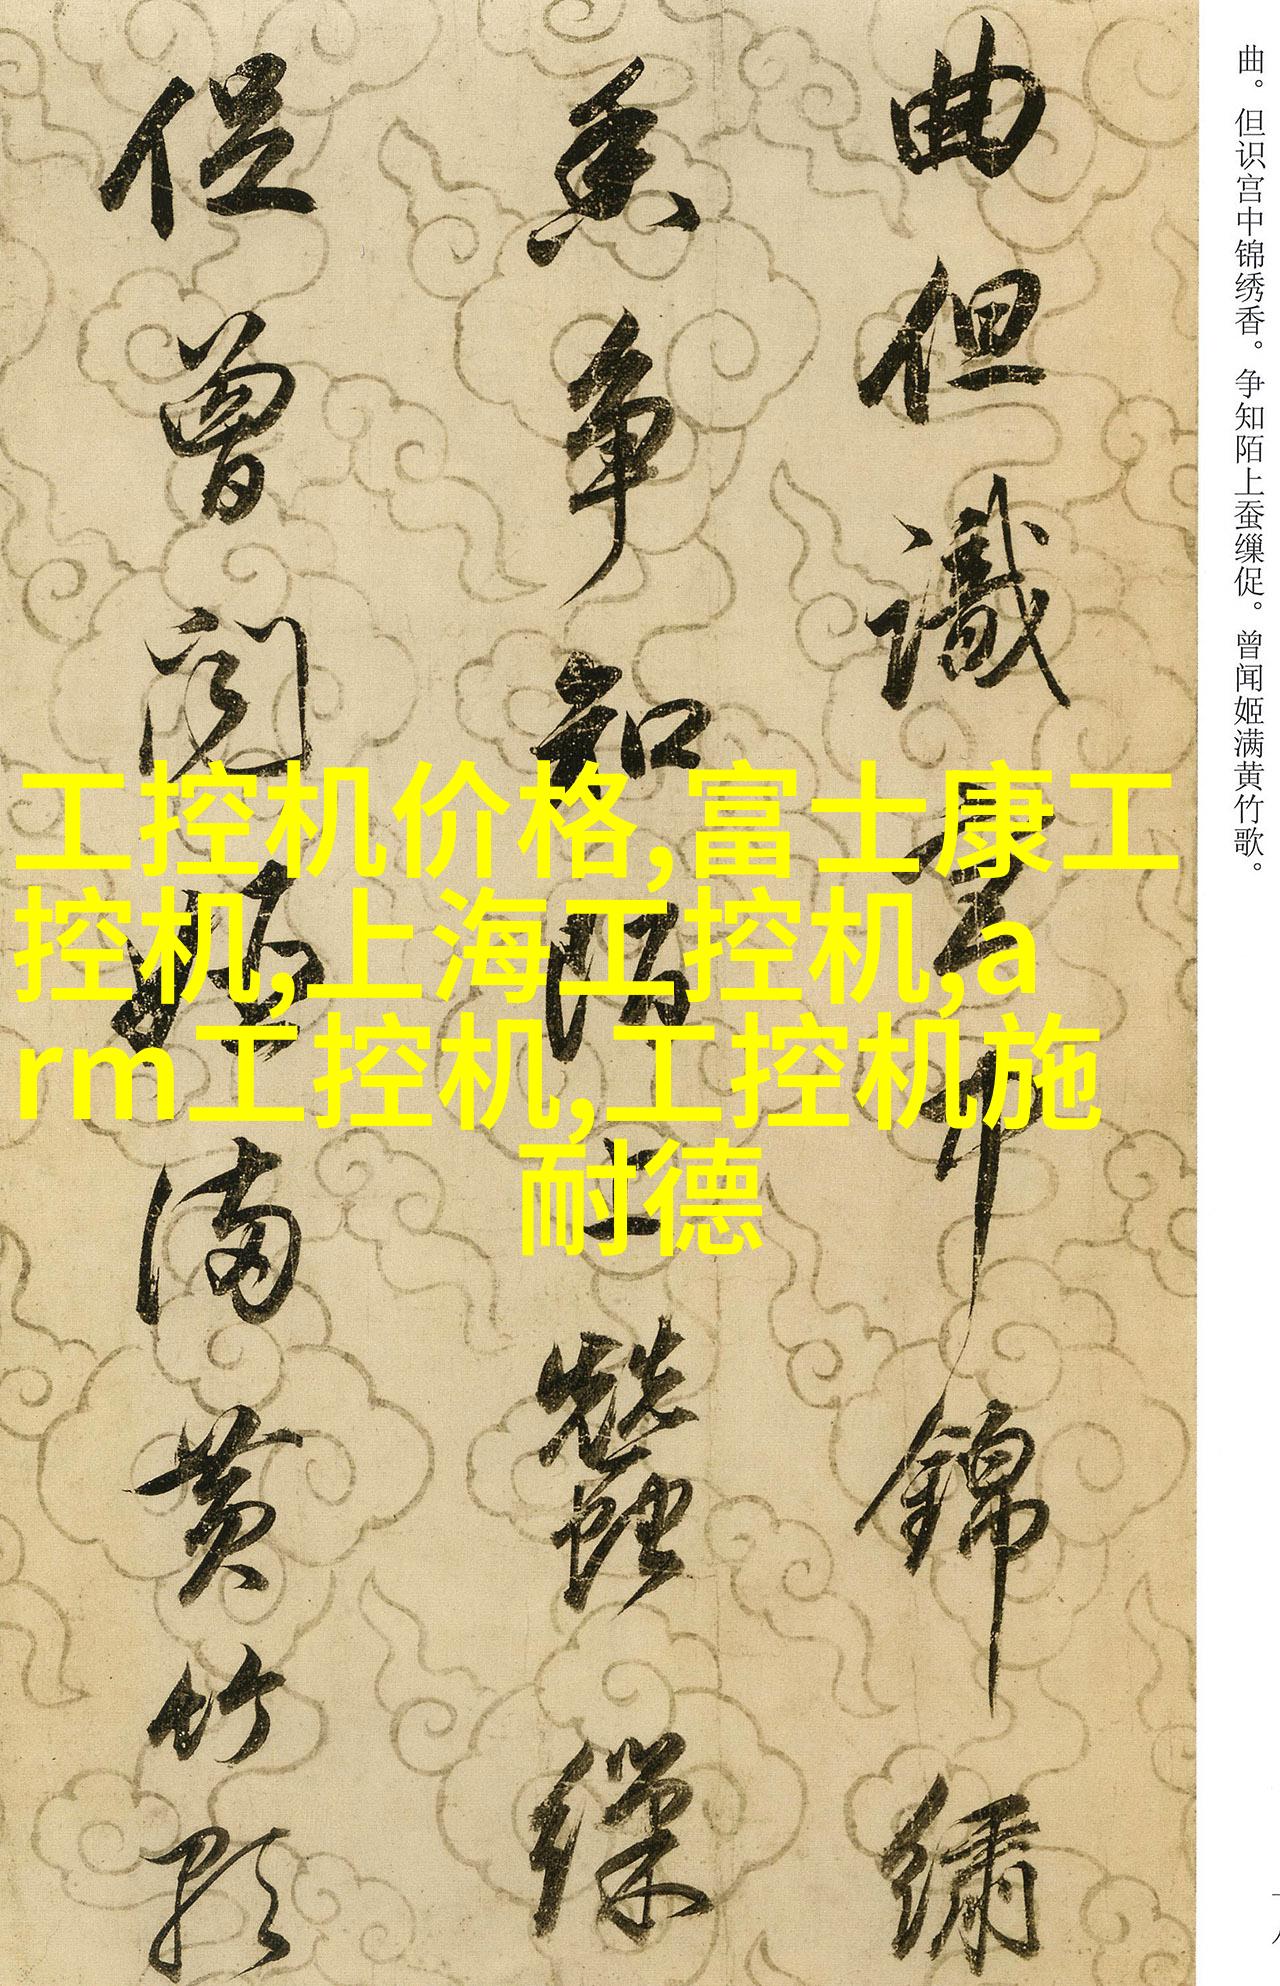 曲但識宮中錦繡
香争知陌上蠶繅
促曾闻姬满黄竹歌
曲。但识宫中锦绣香。争知陌上蚕缫促。曾闻姬满黄竹歌。
工控机价格,富士康工
控机,上海工控机,a
rm工控机,工控机施
耐德